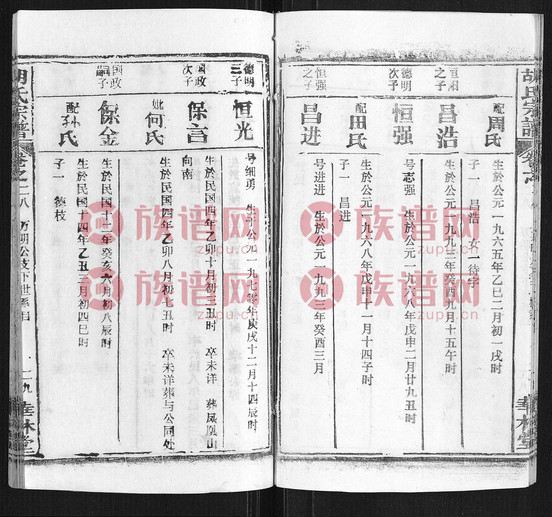 胡氏宗譜
配周氏
生於公元一九六五年乙巳二月初一戌时
子一 昌浩 女一 待字
恒相之子
昌浩
生於公元一九九三年癸酉八月十五午时
德明次子
恒强
号志强 生於公元一九六八年戊申二月廿九丑时
配田氏
生於公元一九六八年戊申十一月十四子时
子一 昌进
恒强之子
昌进
号进进 生於公元一九九三年癸酉三月
華林堂
德明三子
恒光
号细勇 生于公元一九七零年庚戌十二月十四辰时
国政次子
保言
生於民国四年乙卯十月初三戌时 卒未详 葬凤凰山
向南
妣何氏
生於民国四年乙卯八月初七丑时 卒未详葬与公同处
国政嗣子
保金
生於民国十二年癸亥六月初八辰时
配孙氏
生於民国十四年乙丑三月初四巳时
子一 德枝
胡氏宗譜
卷之二八
万朝公枝下世系
一一九
華林堂
族谱网
zupu.cn
族谱网
zupu.cn
族谱网
zupu.cn
族谱网
zupu.cn